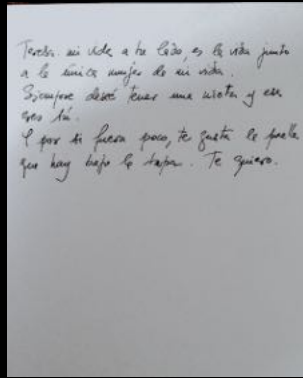 mi vida a tu lado, es la vida junto
a la única mujer de mi vida.
Siempre deseé tener una nieta y esa
eres tú.
Y por si fuera poco, te gusta la paella
que hay bajo la tapa. Te quiero.